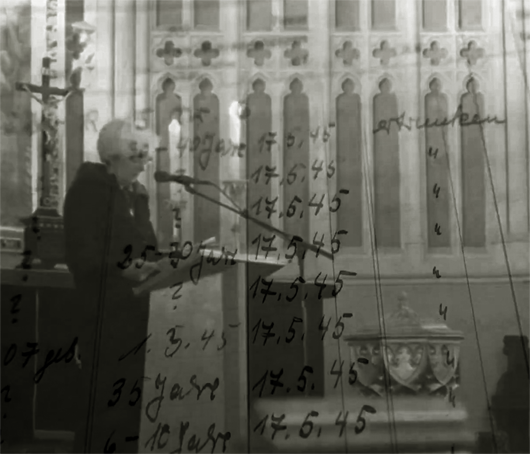 40 Jahre 17.5.45 ertrunken
17.5.45 "
? 17.5.45 "
25-30 Jahre 17.5.45 "
? ? 17.5.45 "
07 geb. 1.3.45 17.5.45 "
? 35 Jahre 17.5.45 "
6-10 Jahre 17.5.45 "